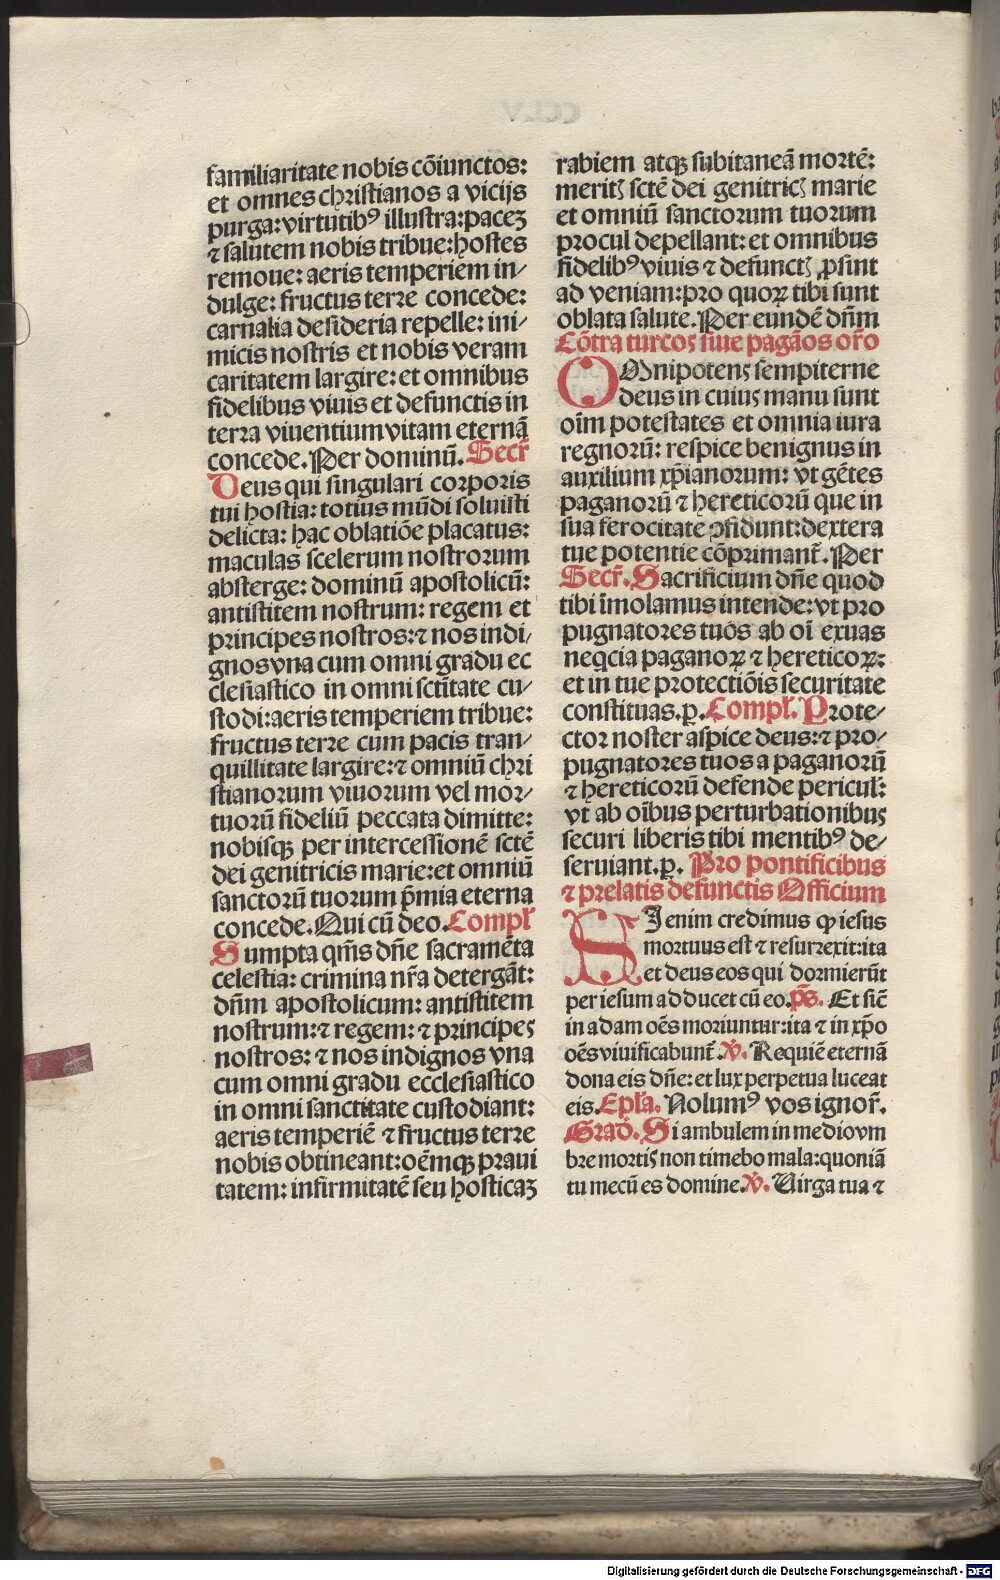 familiaritate nobis cōiunctos:
et omnes christianos a vicijs
purga: virtutibꝰ illustra: paceꝫ
⁊ salutem nobis tribue: hostes
remoue: aeris temperiem in⸗
dulge: fructus terre concede:
carnalia desideria repelle: ini⸗
micis nostris et nobis veram
caritatem largire: et omnibus
fidelibus viuis et defunctis in
terra viuentium vitam eternā
concede. Per dominū. Secr̄
Deus qui singulari corporis
tui hostia: totius mūdi soluisti
delicta: hac oblatiōe placatus:
maculas scelerum nostrorum
absterge: dominū apostolicū:
antistitem nostrum: regem et
principes nostros: ⁊ nos indi⸗
gnos vna cum omni gradu ec
clesiastico in omni sctitate cu⸗
stodi: aeris temperiem tribue:
fructus terre cum pacis tran⸗
quillitate largire: ⁊ omniū chri
stianorum viuorum vel mor⸗
tuorū fideliū peccata dimitte:
nobisqꝫ per intercessionē sctē
dei genitricis marie: et omniū
sanctorū tuorum p̄mia eterna
concede. Qui cū deo. Compl̄
Sumpta qm̄s dn̄e sacramēta
celestia: crimina nr̄a detergāt:
dn̄m apostolicum: antistitem
nostrum: ⁊ regem: ⁊ principes
nostros: ⁊ nos indignos vna
cum omni gradu ecclesiastico
in omni sanctitate custodiant:
aeris temperiē ⁊ fructus terre
nobis obtineant: oēmqꝫ praui
tatem: infirmitatē seu hosticaꝫ
rabiem atqꝫ subitaneā mortē:
meritꝭ sctē dei genitricꝭ marie
et omniū sanctorum tuorum
procul depellant: et omnibus
fidelibꝰ viuis ⁊ defunctꝭ ꝓsint
ad veniam: pro quoꝝ tibi sunt
oblata salute. Per eundē dn̄m
Cōtra turcos siue pagāos oro
OMnipotens sempiterne
deus in cuius manu sunt
oīm potestates et omnia iura
regnorū: respice benignus in
auxilium xp̄ianorum: vt gētes
paganorū ⁊ hereticorū que in
sua ferocitate ꝯfidunt: dextera
tue potentie cōprimant̄. Per
Secr̄. Sacrificium dn̄e quod
tibi īmolamus intende: vt pro
pugnatores tuos ab oī exuas
neqcia paganoꝝ ⁊ hereticoꝝ:
et in tue protectiōis securitate
constituas. ꝑ. Compl̄. Prote⸗
ctor noster aspice deus: ⁊ pro⸗
pugnatores tuos a paganorū
⁊ hereticorū defende pericul̄:
vt ab oībus perturbationibus
securi liberis tibi mentibꝰ de⸗
seruiant. ꝑ. Pro pontificibus
⁊ prelatis defunctis Officium
SI enim credimus ꝙ iesus
mortuus est ⁊ resurrexit: ita
et deus eos qui dormierūt
per iesum adducet cū eo. p̄s. Et sic̄
in adam oēs moriuntur: ita ⁊ in xp̄o
oēs viuificabunt̄. ℣. Requiē eternā
dona eis dn̄e: et lux perpetua luceat
eis. Epl̄a. Nolumꝰ vos ignor̄.
Grad̄. Si ambulem in medio vm
bre mortis non timebo mala: quoniā
tu mecū es domine. ℣. Uirga tua ⁊
Digitalisierung gefördert durch die Deutsche Forschungsgemeinschaft - DFG